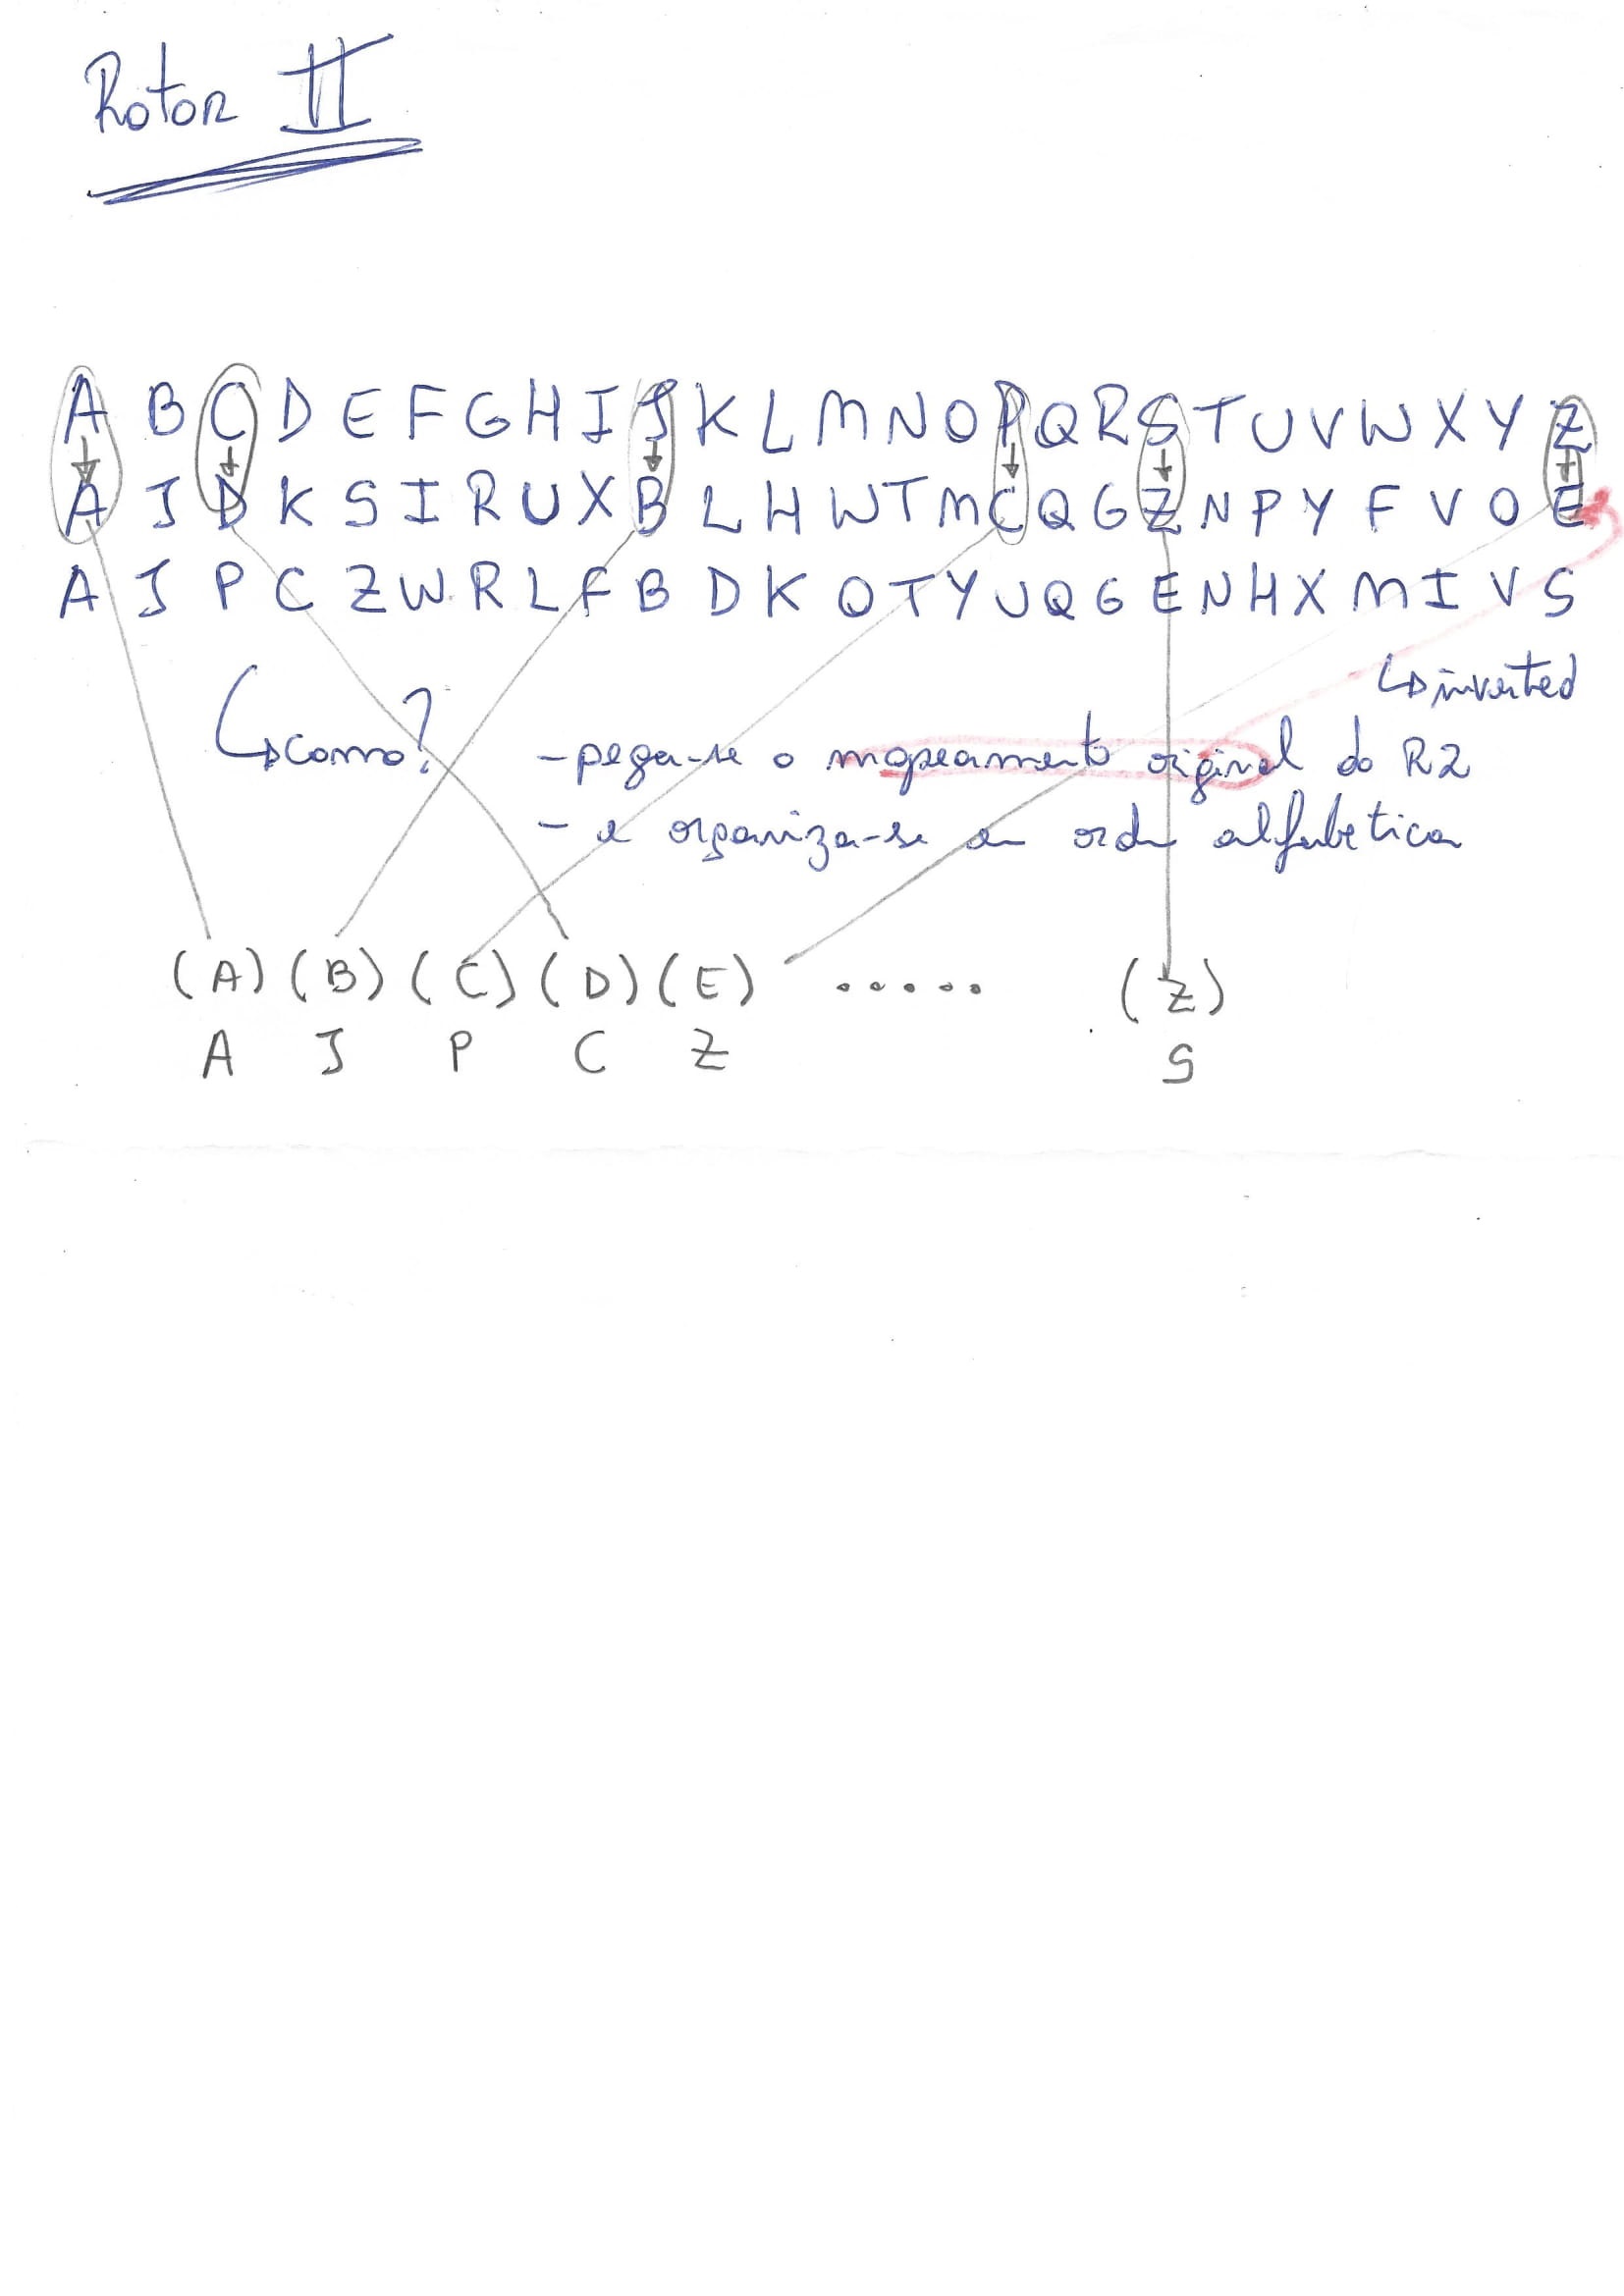 Rotor II
A B C D E F G H I J K L M N O P Q R S T U V W X Y Z
A J D K S I R U X B L H W T M C Q G Z N P Y F V O E
A J P C Z W R L F B D K O T Y U Q G E N H X M I V S
inverted
como?
- pega-se o mapeamento original do R2
- e organiza-se em ordem alfabetica
(A) (B) (C) (D) (E) ..... (Z)
A J P C Z S